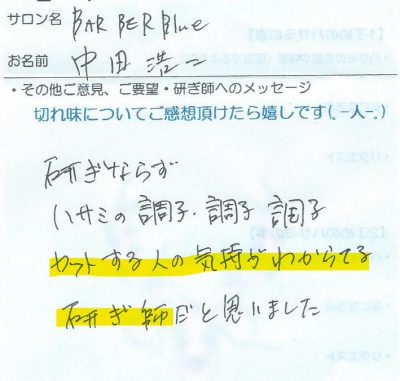 サロン名 BARBER Blue
お名前 中田 浩二
・その他ご意見、ご要望・研ぎ師へのメッセージ
切れ味についてご感想頂けたら嬉しです(.-人-.)
研ぎならず
ハサミの調子・調子 調子
カットする人の気持がわからてる
研ぎ師だと思いました